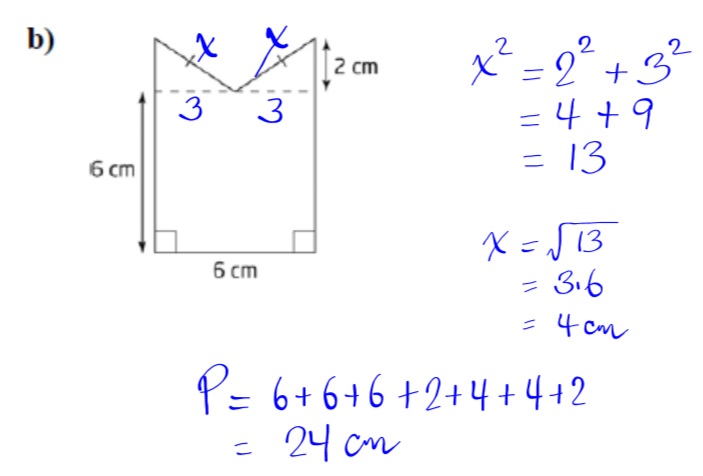 b)
x x
2 cm
3 3
6 cm
6 cm
x² = 2² + 3²
= 4 + 9
= 13
x = √13
= 3.6
= 4 cm
P = 6+6+6+2+4+4+2
= 24 cm